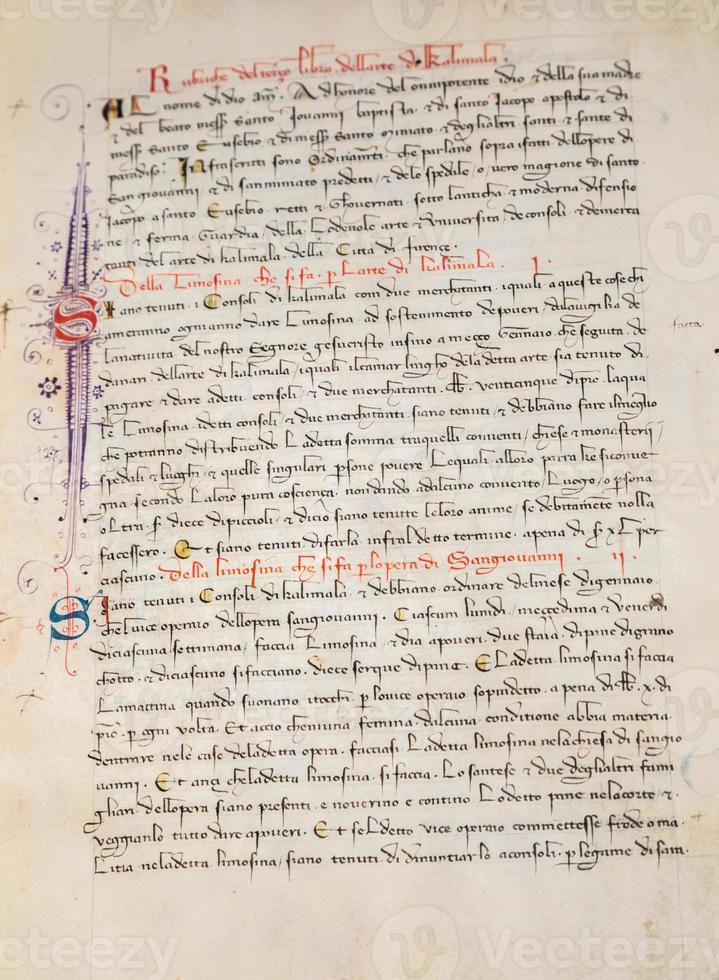 Rubriche del terzo libro dell arte di kalimala.
AL nome di dio Am̄. Ad honore del onnipotente idio & della sua madre
& del beato mess̄ Santo Iouanni baptista & di santo Jacopo apostolo & di
mess̄ Santo Eusebio & di mess̄ Santo miniato & degli altri santi & sante di
paradiso. Infrascritti sono Ordinam̄ti che parlano sopra i fatti dell opere di
San giouanni & di san miniato predetti & de lo spedale o uero magione di santo
Jacopo a santo Eusebio retti & ghouernati sotto lanticha & moderna difensio
ne & ferma Guardia della Lodeuole arte & Vniuersita de consoli & de merca
tanti del arte di kalimala della Citta di firence.
Della Limosina che si fa p̱ Larte di kalimala. I.
Siano tenuti i Consoli di kalimala con due merchatanti i quali a queste cose chi
ameranno ogni anno dare Limosina ad sostenimento de poueri dalla uigilia de
la natiuita del nostro Segnore giesu cristo insino a meço Gennaio che seguita de
danari dell arte di kalimala i quali il camarlingho de la detta arte sia tenuto di
pagare & dare a detti consoli & due merchatanti. lb̄. uenticinque di pic̄. la qua
le Limosina i detti consoli & due merchatanti siano tenuti & debbiano fare il meglio
che potranno distribuendo La detta somma tra quelli conuenti chiese & monasterii
spedali & luoghi & quelle singulari p̱sone pouere Le quali a lloro parra che si conuen
gna secondo La loro pura coscienca non dando ad alcuno conuento Luogo o p̱sona
oltra s̄. diece di piccioli & di cio siano tenute le loro anime se debitamēte no lla
facessero. Et siano tenuti di farla infra l detto termine a pena di s̄ xl per
ciascuno. Della limosina che si fa p̱ lopera di San giouanni. II.
Siano tenuti i Consoli di kalimala & debbiano ordinare del mese di gennaio
che l uice operaio dell opera san giouanni. Ciascun lundi meçedima & uenerdi
di ciascuna settimana faccia Limosina & dia a poueri due staia di pane di grano
chotto & di ciascuno si facciano diece serque di pani. E La detta limosina si faccia
La mattina quando suonano i tocchi p̱ lo uice operaio sopradetto a pena di lb̄. x. di
pic̄. p̱ ogni uolta. Et accio che niuna femina d alcuna conditione abbia materia
d entrare ne le case de la detta opera facciasi La detta limosina ne la chiesa di san gio
uanni. Et anci che la detta limosina si faccia Lo santese & due degli altri fami
gliari dell opera siano presenti e nouerino e contino Lo detto pane ne la corte &
ueggianlo tutto dare a poueri. Et se l detto uice operaio commettesse frode o ma
litia ne la detta limosina siano tenuti di dinuntiarlo a consoli p̱ legame di sara.
facta
Vecteezy